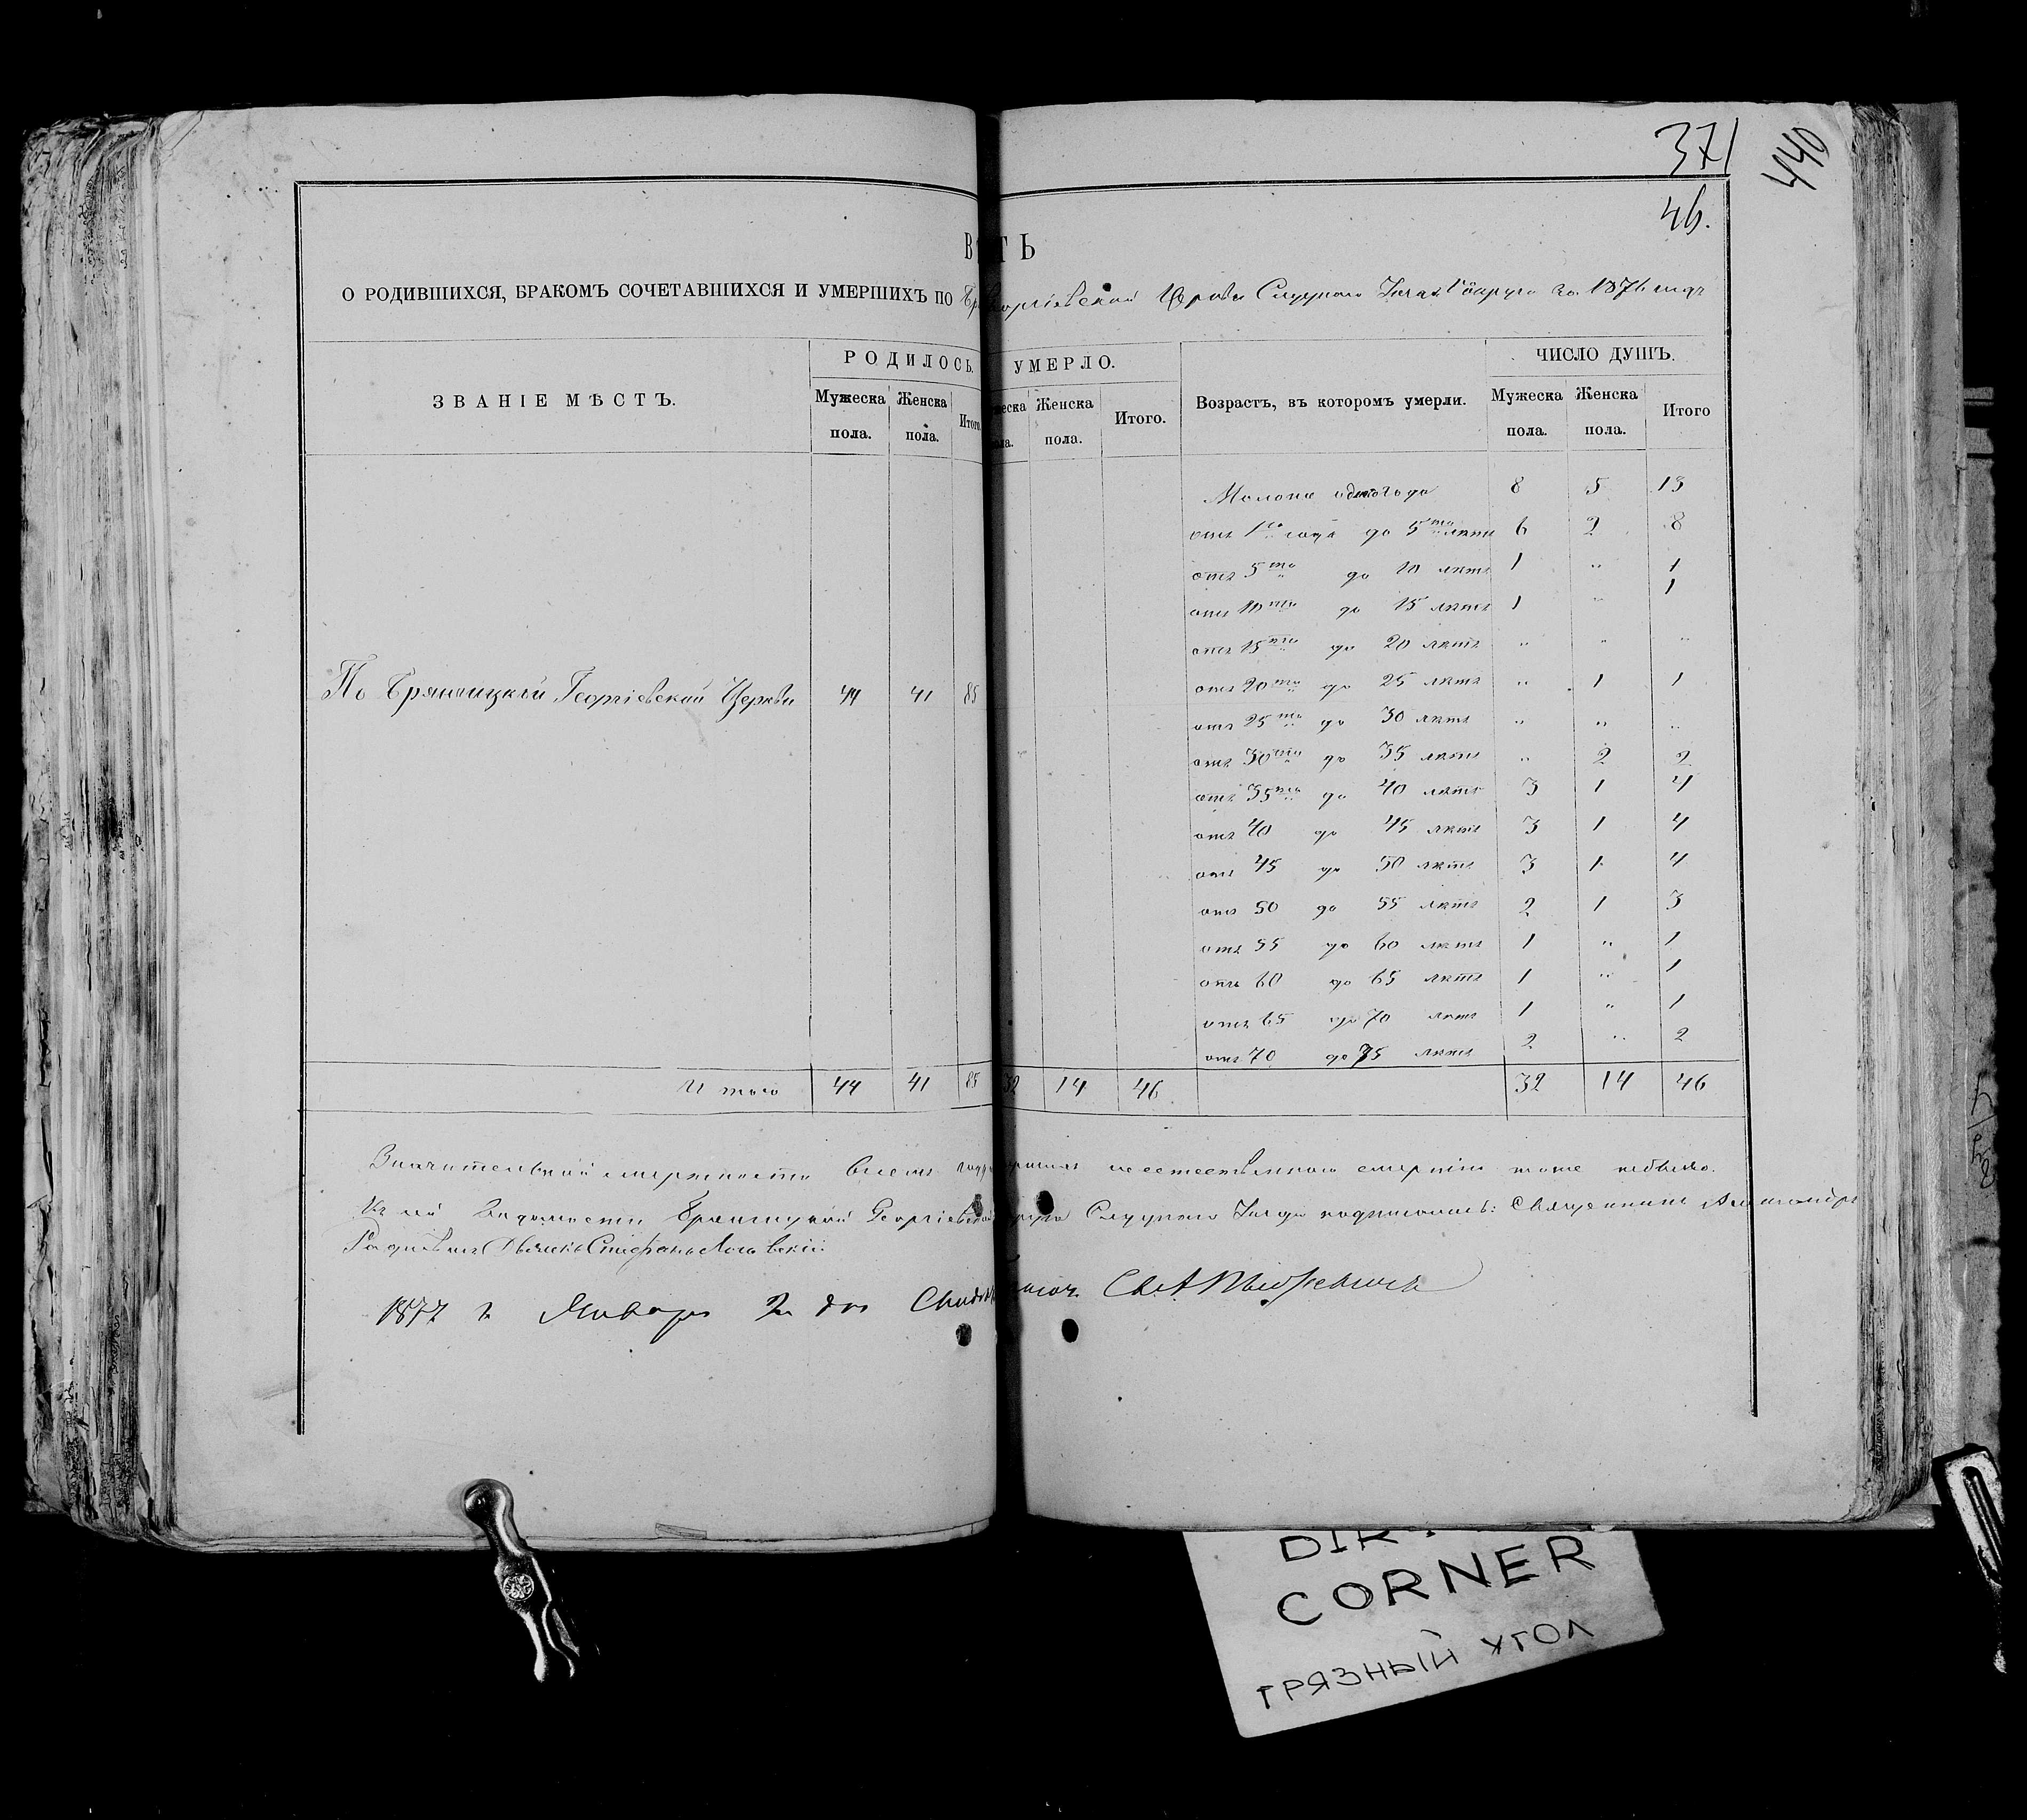 371
440
46.
ВѢ ТЬ
О РОДИВШИХСЯ, БРАКОМЪ СОЧЕТАВШИХСЯ И УМЕРШИХЪ ПО Георгіевской Церкви Слуцкаго 1876 годъ
ЗВАНІЕ МѢСТЪ. РОДИЛОСЬ. УМЕРЛО. Возрастъ, въ которомъ умерли. ЧИСЛО ДУШЪ.
Мужеска пола. Женска пола. Итого. Женска пола. Итого. Мужеска пола. Женска пола. Итого
8 5 13
отъ 1го года до 5ти лѣтъ 6 2 8
отъ 5ти до 10 лѣтъ 1 " 1
отъ 10ти до 15 лѣтъ 1 " 1
отъ 15ти до 20 лѣтъ " " "
отъ 20ти до 25 лѣтъ " 1 1
По Георгіевской Церкви 44 41 85
отъ 25ти до 30 лѣтъ " " "
отъ 30ти до 35 лѣтъ " 2 2
отъ 35ти до 40 лѣтъ 3 1 4
отъ 40 до 45 лѣтъ 3 1 4
отъ 45 до 50 лѣтъ 3 1 4
отъ 50 до 55 лѣтъ 2 1 3
отъ 55 до 60 лѣтъ 1 " 1
отъ 60 до 65 лѣтъ 1 " 1
отъ 65 до 70 лѣтъ 1 " 1
отъ 70 до 75 лѣтъ 2 " 2
Итого 44 41 85 32 14 46 32 14 46
Значительной смертности смерти тоже небыло.
К сей Вѣдомости Георгіевской Слуцкаго Уѣзда подписались: Священникъ Александръ
Стефанъ
1877 г. Января 2 дня
DIR
CORNER
ГРЯЗНЫЙ УГОЛ